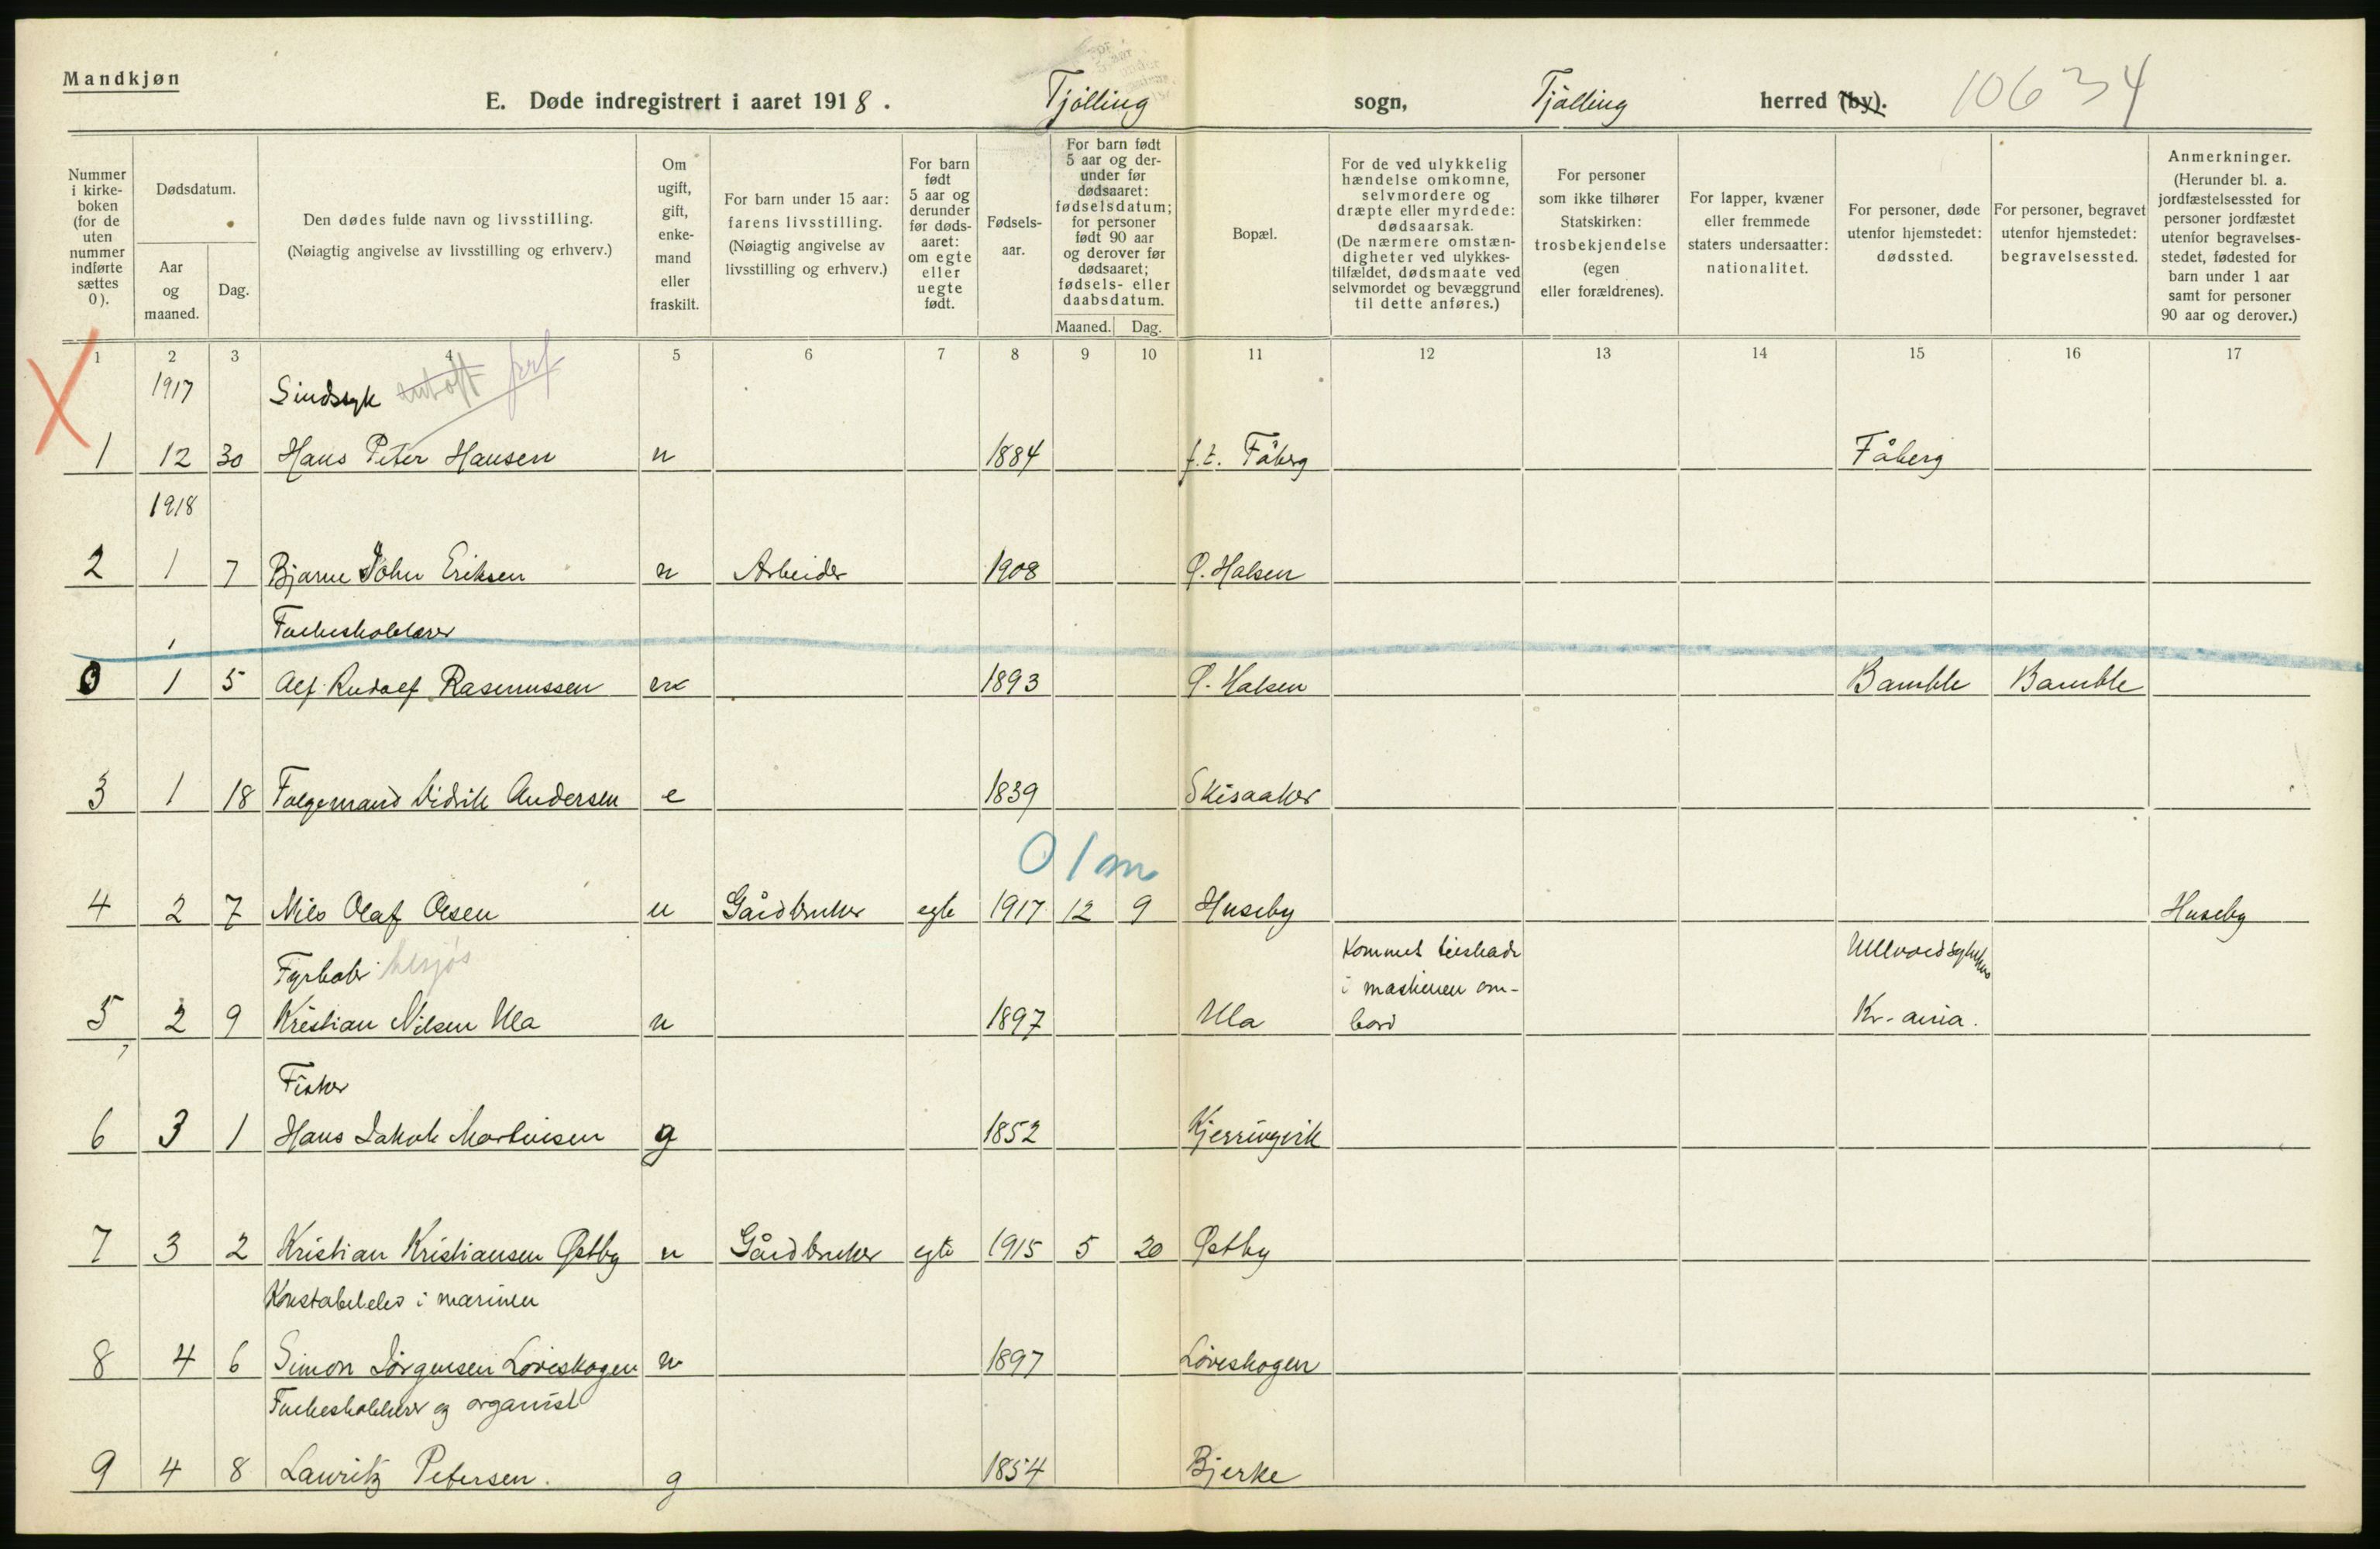 Mandkjøn
E. Døde indregistrert i aaret 1918. Tjölling sogn, Tjölling herred (by). 10634
Nummer i kirke- boken (for de uten nummer indførte sættes 0).
Dødsdatum.
Aar og maaned.
Dag.
Den dødes fulde navn og livsstilling.
(Nøiagtig angivelse av livsstilling og erhverv.)
Om ugift, gift, enke- mand eller fraskilt.
For barn under 15 aar: farens livsstilling. (Nøiagtig angivelse av livsstilling og erhverv.)
For barn født 5 aar og derunder før døds- aaret: om egte eller uegte født.
Fødsels- aar.
For barn født 5 aar og der- under før dødsaaret: fødselsdatum; for personer født 90 aar og derover før dødsaaret; fødsels- eller daabsdatum.
Maaned. Dag.
Bopæl.
For de ved ulykkelig hændelse omkomne, selvmordere og dræpte eller myrdede: dødsaarsak. (De nærmere omstæn- digheter ved ulykkes- tilfældet, dødsmaate ved selvmordet og bevæggrund til dette anføres.)
For personer som ikke tilhører Statskirken: trosbekjendelse (egen eller forældrenes).
For lapper, kvæner eller fremmede staters undersaatter: nationalitet.
For personer, døde utenfor hjemstedet: dødssted.
For personer, begravet utenfor hjemstedet: begravelsessted.
Anmerkninger. (Herunder bl. a. jordfæstelsessted for personer jordfæstet utenfor begravelses- stedet, fødested for barn under 1 aar samt for personer 90 aar og derover.)
1 2 3 4 5 6 7 8 9 10 11 12 13 14 15 16 17
1917 Sindssyk
1 12 30 Hans Peter Hansen u 1884 f.t. Fåberg Fåberg
1918
2 1 7 Bjarne John Eriksen u Arbeider 1908 Ø. Halsen
Folkeskolelærer
0 1 5 Alf Rudolf Rasmussen em 1893 Ø. Halsen Bamble Bamble
3 1 18 Folgemand Didrik Andersen e 1839 Skisaaker
0 1 m
4 2 7 Nils Olaf Olsen u Gårdbruker egte 1917 12 9 Huseby Huseby
Fyrbøter Kommet tilskade Ullevoldsykehus
i maskinen om-
5 2 9 Kristian Nilsen Ula u 1897 Ula bord Kr-ania.
Fisker
6 3 1 Hans Jakob Martinsen g 1852 Kjerringvik
7 3 2 Kristian Kristiansen Østby u Gårdbruker egte 1915 5 20 Østby
Konstabelelev i marinen
8 4 6 Simon Jørgensen Løveskogen u 1897 Løveskogen
Folkeskolelærer og organist
9 4 8 Lauritz Petersen. g 1854 Bjerke